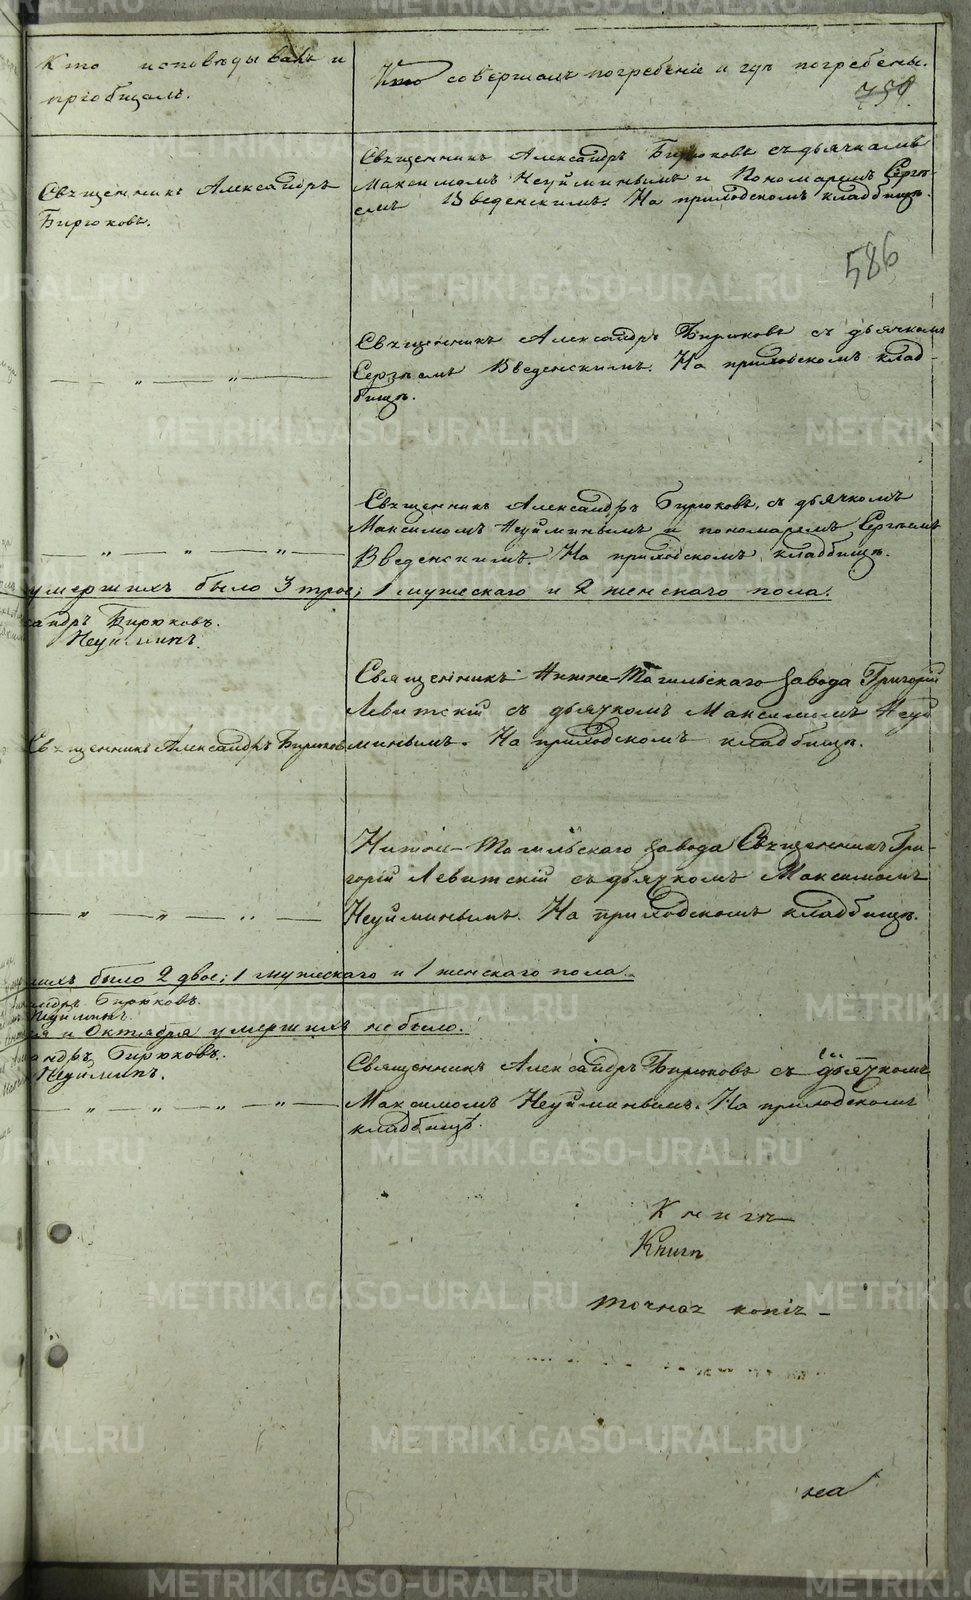 Кто исповѣдывалъ и
пріобщалъ.
Кто совершалъ погребеніе и гдѣ погребены.
750.
Священникъ Александръ
Бирюковъ.
Священникъ Александръ Бирюковъ съ дьячкомъ
Максимомъ Неуйминымъ и Пономаремъ Сергѣ-
емъ Введенскимъ. На приходскомъ кладбищѣ.
586
— „ — „ —
Священникъ Александръ Бирюковъ съ дьячкомъ
Сергѣемъ Введенскимъ. На приходскомъ клад-
бищѣ.
— „ — „ — „ —
Священникъ Александръ Бирюковъ, съ дьячкомъ
Максимомъ Неуйминымъ и пономаремъ Сергѣемъ
Введенскимъ. На приходскомъ кладбищѣ.
умершихъ было 3 трое; 1 мужескаго и 2 женскаго пола.
сандръ Бирюковъ.
Неуйминъ.
Священникъ Александръ Бирюковъ
Священникъ Нижне-Тагильскаго завода Григорій
Левитскій съ дьячкомъ Максимомъ Неуй
минымъ. На приходскомъ кладбищѣ.
— „ — „ — „ —
Нижне-Тагильскаго завода Священникъ Гри-
горій Левитскій съ дьячкомъ Максимомъ
Неуйминымъ. На приходскомъ кладбищѣ.
шихъ было 2 двое; 1 мужескаго и 1 женскаго пола.
андръ Бирюковъ.
Неуйминъ.
и Октября умершихъ не было.
андръ Бирюковъ.
Неуйминъ.
— „ — „ — „ — „ —
Священникъ Александръ Бирюковъ съ дьячкомъ
Максимомъ Неуйминымъ. На приходскомъ
кладбищѣ.
Книгѣ
Книги
точная копія
на
METRIKI.GASO-URAL.RU